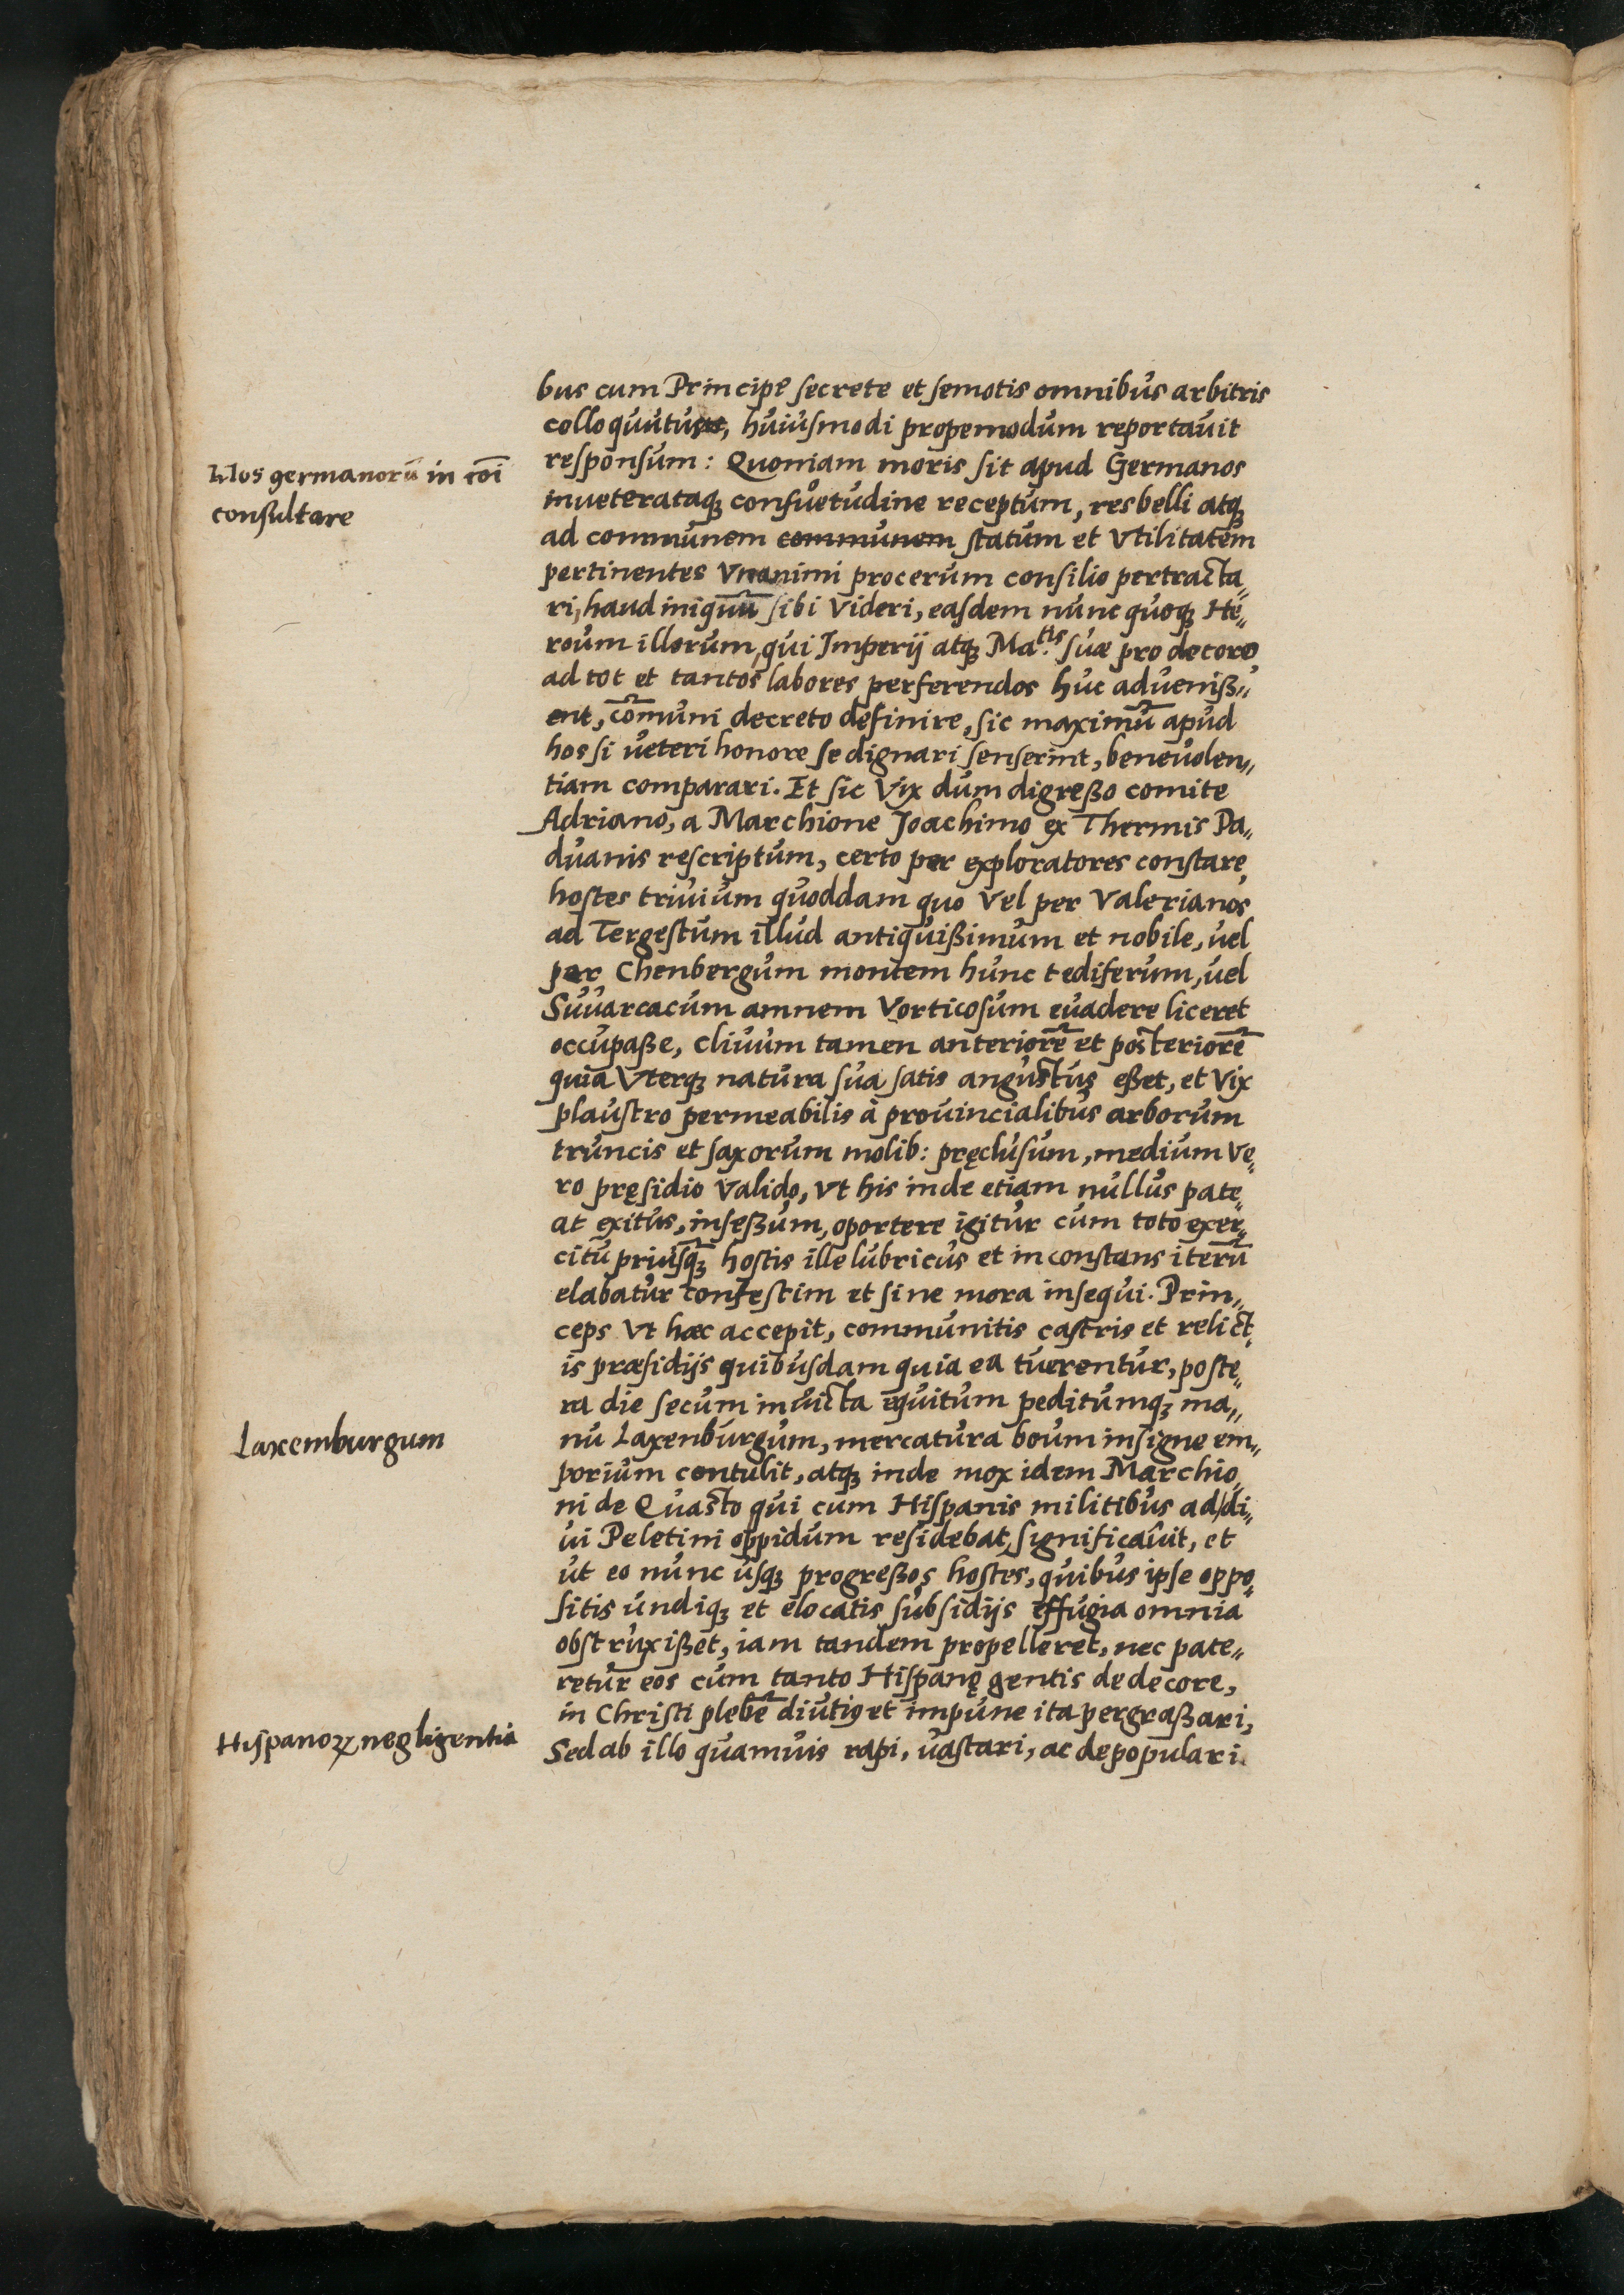 bus cum Principe secrete et semotis omnibus arbitris
colloquutus, huiusmodi propemodum reportauit
Mos germanorū in cōi
consultare
responsum: Quoniam moris sit apud Germanos
inueterataqꝫ consuetudine receptum, res belli atqꝫ
ad communem communem statum et vtilitatem
pertinentes vnanimi procerum consilio pertracta„
ri, haud iniquū sibi videri, easdem nunc quoqꝫ He„
roum illorum, qui Imperij atqꝫ Ma.tis suæ pro decore
ad tot et tantos labores perferendos huc adueniß„
ent, cōmuni decreto definire, sic maximū apud
hos si veteri honore se dignari senserint, beneuolen„
tiam comparari. Et sic vix dum digreßo comite
Adriano, a Marchione Joachimo ex Thermis Pa„
duanis rescriptum, certo per exploratores constare,
hostes triuium quoddam quo vel per Valerianos
ad Tergestum illud antiquißimum et nobile, uel
per Chenbergum montem hunc tediferum, uel
Suuarcacum amnem vorticosum euadere liceret
occupaße, cliuum tamen anteriorē et posteriorē
quia vterqꝫ natura sua satis angustus eßet, et vix
plaustro permeabilis à prouincialibus arborum
truncis et saxorum molib: pręclusum, medium ve„
ro pręsidio valido, vt his inde etiam nullus pate„
at exitus, inseßum, oportere igitur cum toto exer„
citu priusqꝫ̄ hostis ille lubricus et inconstans iterū
elabatur confestim et sine mora insequi. Prin„
ceps vt hæc accepit, communitis castris et relict„
is præsidijs quibusdam quia ea tuerentur, poste„
ra die secum inuicta equitum peditumqꝫ ma„
Laxemburgum
nu Laxenburgum, mercatura boum insigne em„
porium contulit, atqꝫ inde mox idem Marchio„
ni de Quasto qui cum Hispanis militibus ad di„
ui Peletini oppidum residebat, significauit, et
ut eo nunc usqꝫ progreßos hostes, quibus ipse oppo„
sitis undiqꝫ et elocatis subsidijs effugia omnia
obstruxißet, iam tandem propelleret, nec pate„
retur eos cum tanto Hispanę gentis dedecore,
in Christi plebē diutiꝰ et impune ita pergraßari,
Hispanoꝝ negligentia
Sed ab illo quamuis rapi, uastari, ac depopulari